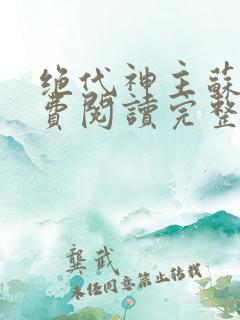 绝代神主蘇
費閱讀完整
龔武
未经同意禁止转载